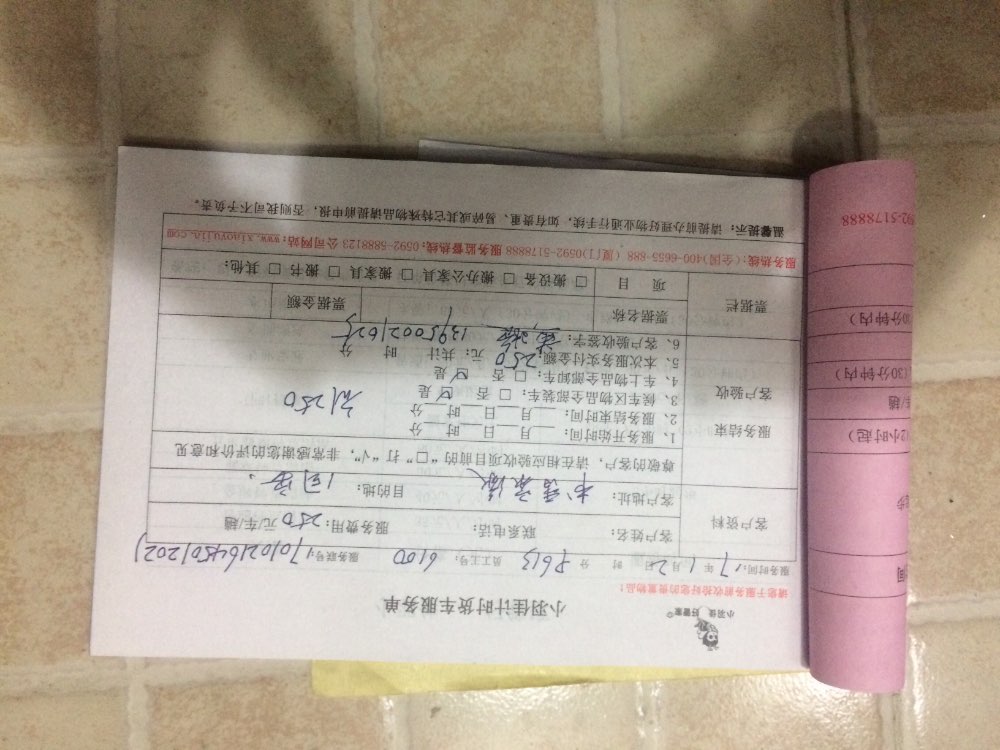 小羽佳 好管家
小羽佳计时货车服务单
请您于服务前收拾好您的贵重物品!
服务时间:17 年 1 月 2 日 时 分 员工工号: 6100 服务联号:
客户资料
客户姓名: 联系电话: 服务费用:250 元/车趟
客户地址: 目的地:
尊敬的客户,请在相应验收项目前的“□”打“√”,非常感谢您的评价和意见
服务结束
客户验收
1、服务开始时间: 月 日 时 分
2、服务结束时间: 月 日 时 分
3、候车区物品全部装车:□ 否 ☑ 是
4、车上物品全部卸车:□ 否 ☑ 是
5、本次服务实付金额:250 元; 共计 时 分
6、客户验收签字: 13950021025
250
票据栏
票据名称 票据金额
项 目 □ 搬设备 □ 搬办公家具 □ 搬家具 □ 搬书 □ 其他:
服务热线:(全国)400-6655-888 (厦门)0592-5178888 服务监督热线:0592-5888123 公司网站:www.xiaoyujia.com
温馨提示:请提前办理好物业通行手续,如有贵重、易碎或其它特殊物品请提前申报,否则我司不予负责。
间
步
(2小时起)
车/趟
(30分钟内)
30分钟内)
592-5178888